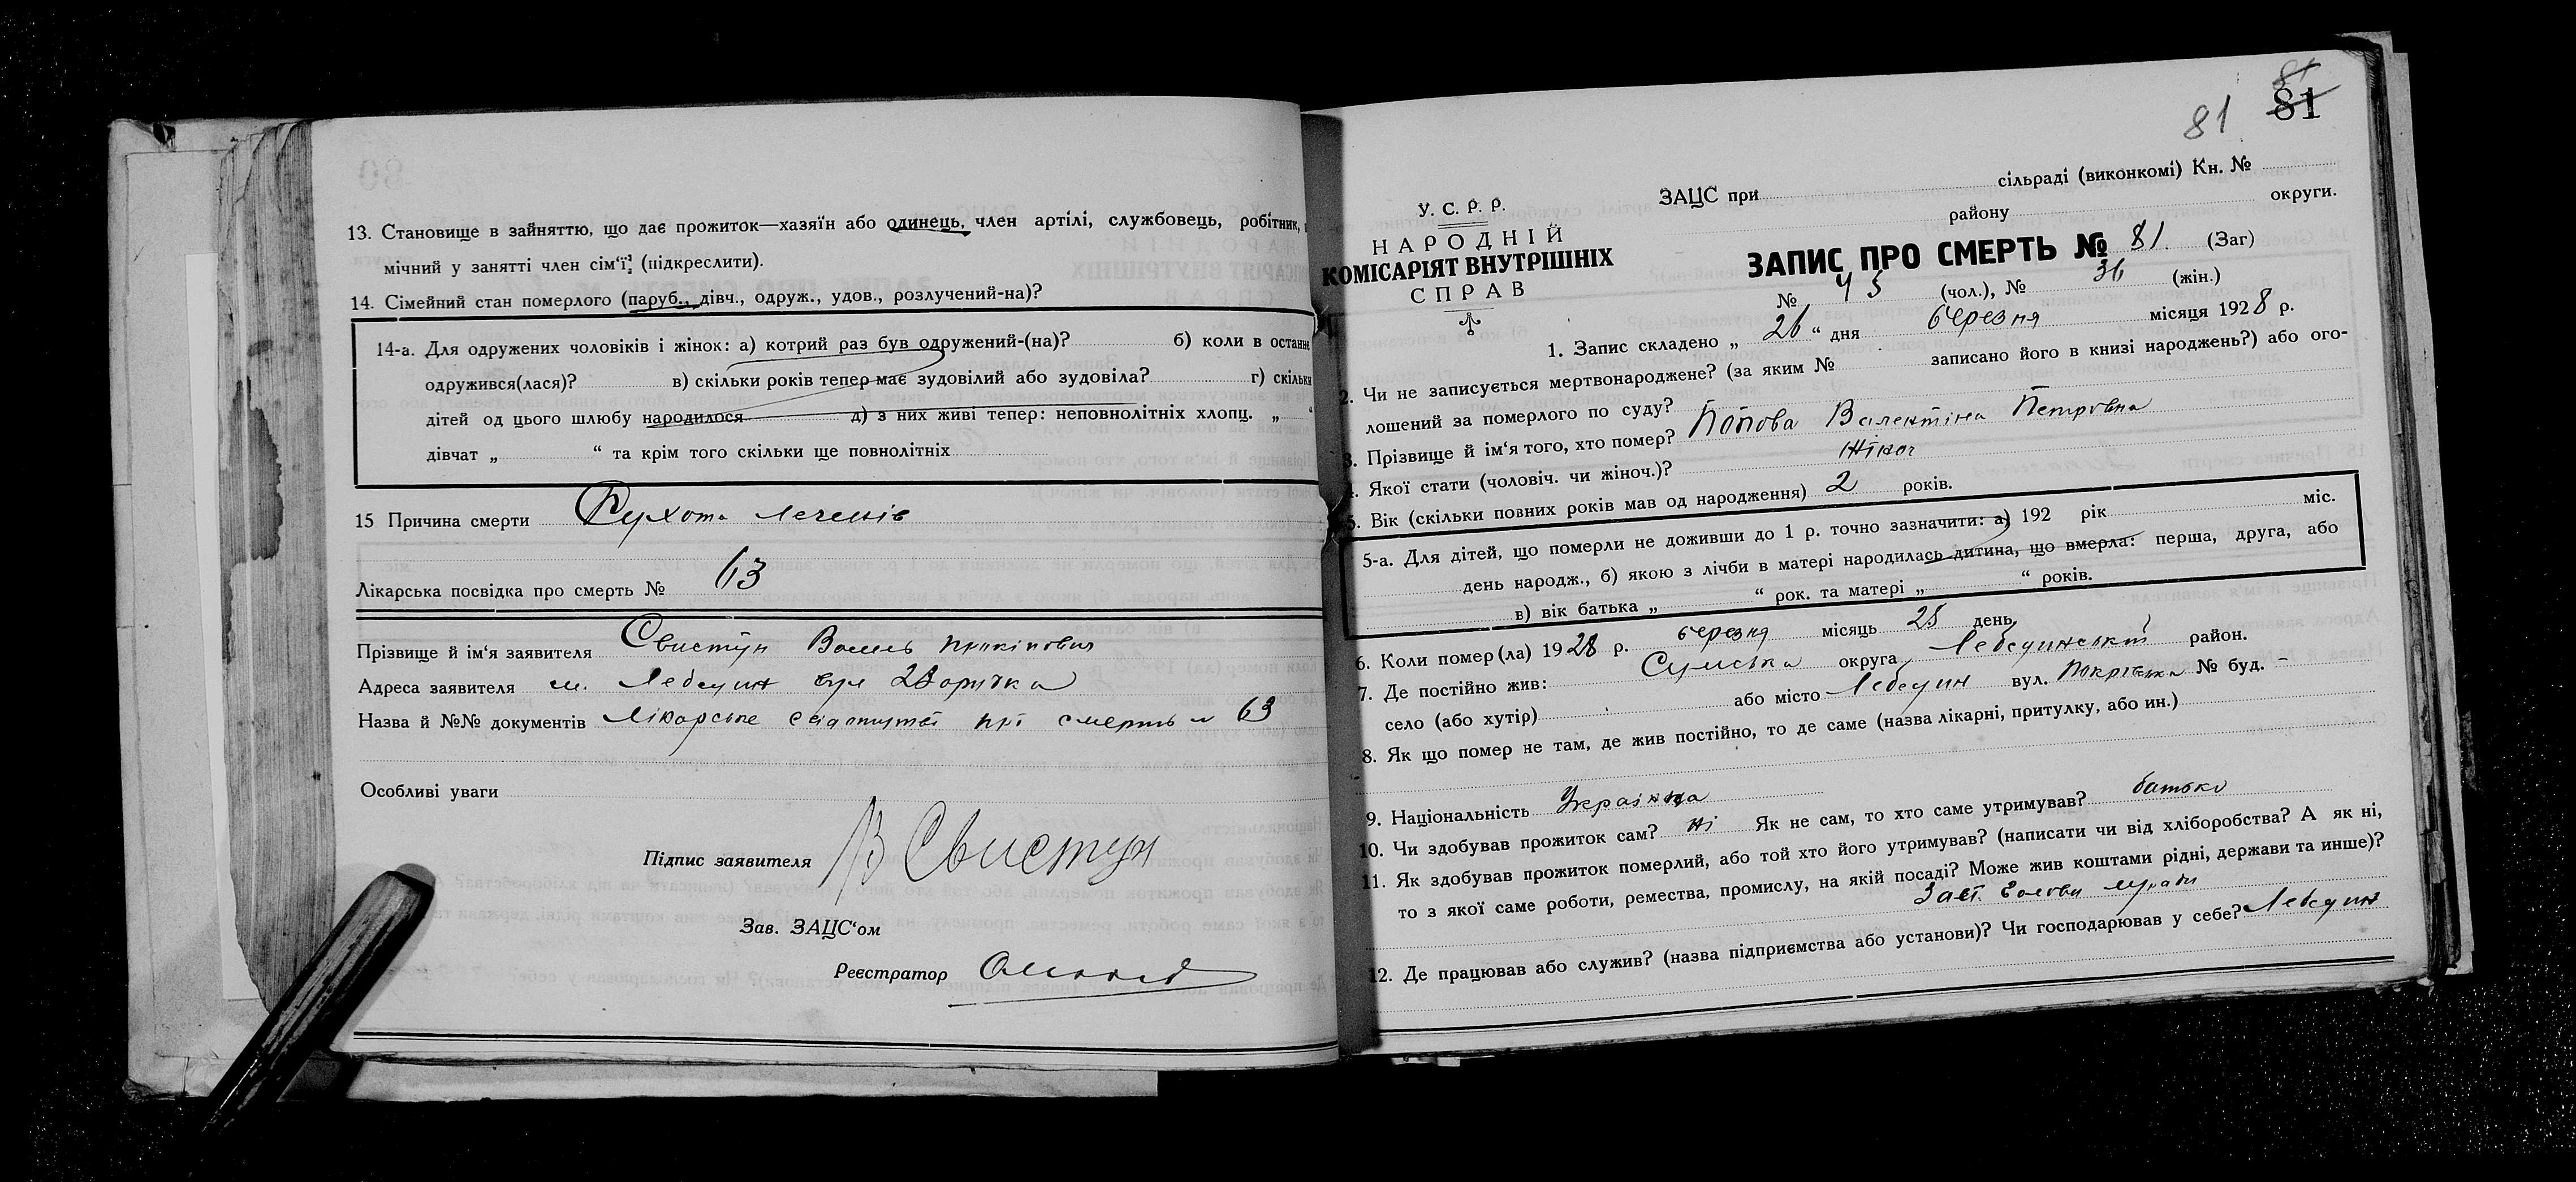 13. Становище в зайняттю, що дає прожиток—хазяїн або одинець, член артілі, службовець, робітник,
мічний у занятті член сім'ї, (підкреслити).
14. Сімейний стан померлого (паруб., дівч., одруж., удов., розлучений-на)?
14-а. Для одружених чоловіків і жінок: а) котрий раз був одружений-(на)? б) коли в останнє
одружився(лася)? в) скільки років тепер має зудовілий або зудовіла? г) скільки
дітей од цього шлюбу народилося д) з них живі тепер: неповнолітніх хлопц. „ “
дівчат „ “ та крім того скільки ще повнолітніх
15 Причина смерти Сухота легенів
Лікарська посвідка про смерть № 63
Прізвище й ім'я заявителя Свистун Василь Прокіпович
Адреса заявителя м. Лебедин вул
Назва й №№ документів Лікарське свідоцтво про смерть № 63
Особливі уваги
Підпис заявителя В Свистун
Зав. ЗАЦС'ом
Реєстратор
81 81
81
ЗАЦС при сільраді (виконкомі) Кн. №
району округи.
У. С. Р. Р.
НАРОДНІЙ
КОМІСАРІЯТ ВНУТРІШНІХ
СПРАВ
ЗАПИС ПРО СМЕРТЬ № 81. (Заг)
№ 45 (чол.), № 36 (жін.)
1. Запис складено „ 26 “ дня березня місяця 1928 р.
2. Чи не записується мертвонароджене? (за яким № записано його в книзі народжень?) або ого-
лошений за померлого по суду?
3. Прізвище й ім'я того, хто помер? Попова Валентіна Петровна
4. Якої стати (чоловіч. чи жіноч.)? Жіноч
5. Вік (скільки повних років мав од народження) 2 років.
5-а. Для дітей, що померли не доживши до 1 р. точно зазначити: а) 192 рік міс.
день народж., б) якою з лічби в матері народилась дитина, що вмерла: перша, друга, або
в) вік батька „ “ рок. та матері „ “ років.
6. Коли помер(ла) 1928 р. березня місяць 25 день
7. Де постійно жив: Сумська округа Лебединський район.
село (або хутір) або місто Лебедин вул. Покрівська № буд. -
8. Як що помер не там, де жив постійно, то де саме (назва лікарні, притулку, або ин.)
9. Національність Українка
10. Чи здобував прожиток сам? Ні Як не сам, то хто саме утримував? батько
11. Як здобував прожиток померлий, або той хто його утримував? (написати чи від хліборобства? А як ні,
то з якої саме роботи, ремества, промислу, на якій посаді? Може жив коштами рідні, держави та инше)?
Заст. Голови
12. Де працював або служив? (назва підприємства або установи)? Чи господарював у себе? Лебедин